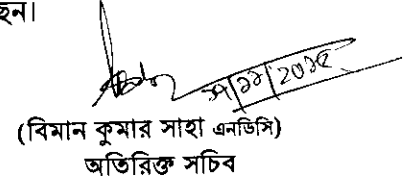 ছেন।
(বিমান কুমার সাহা এনডিসি)
অতিরিক্ত সচিব